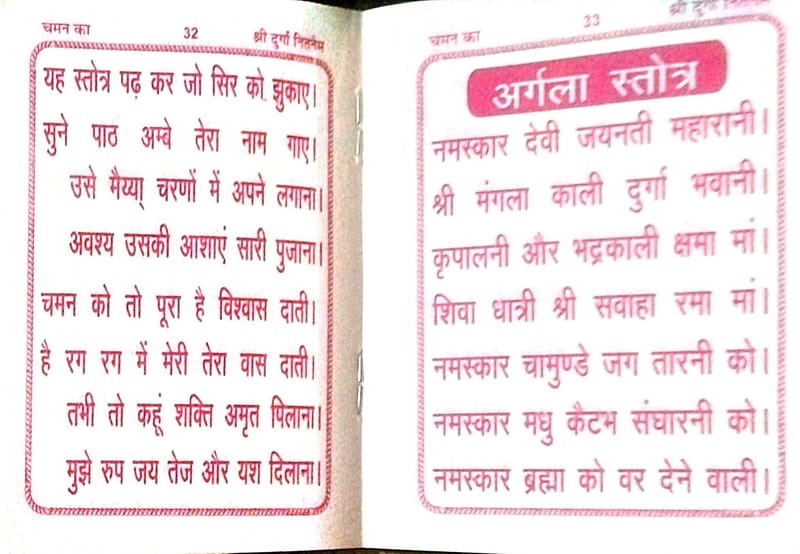 चमन का 32 श्री दुर्गा नितनेम
यह स्तोत्र पढ़ कर जो सिर को झुकाए।
सुने पाठ अम्बे तेरा नाम गाए।
उसे मैय्या चरणों में अपने लगाना।
अवश्य उसकी आशाएं सारी पुजाना।
चमन को तो पूरा है विश्वास दाती।
है रग रग में मेरी तेरा वास दाती।
तभी तो कहूं शक्ति अमृत पिलाना।
मुझे रुप जय तेज और यश दिलाना।
चमन का 33 श्री दुर्गा नितनेम
अर्गला स्तोत्र
नमस्कार देवी जयनती महारानी।
श्री मंगला काली दुर्गा भवानी।
कृपालनी और भद्रकाली क्षमा मां।
शिवा धात्री श्री सवाहा रमा मां।
नमस्कार चामुण्डे जग तारनी को।
नमस्कार मधु कैटभ संघारनी को।
नमस्कार ब्रह्मा को वर देने वाली।